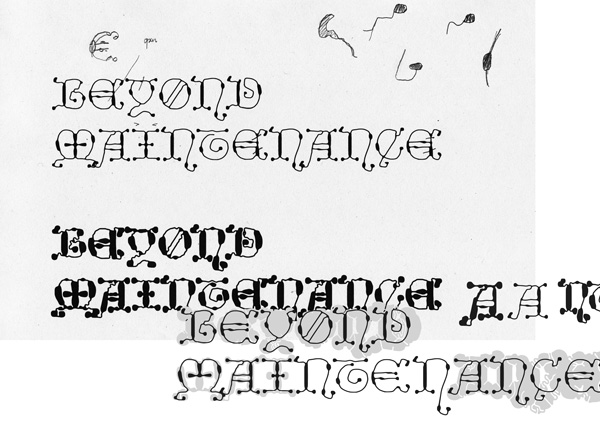 BEYOND
MAINTENANCE
BEYOND
MAINTENANCE A A NT
BEYOND
MAINTENANCE